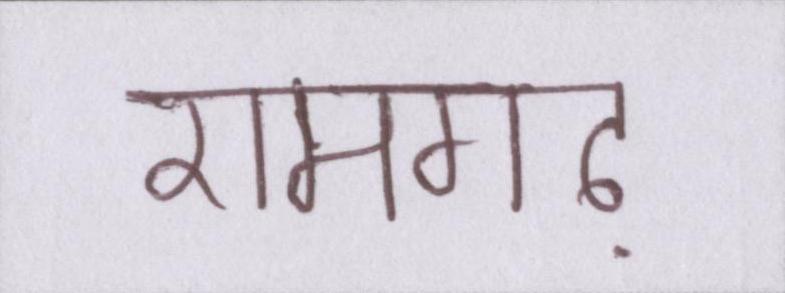 रामगढ़